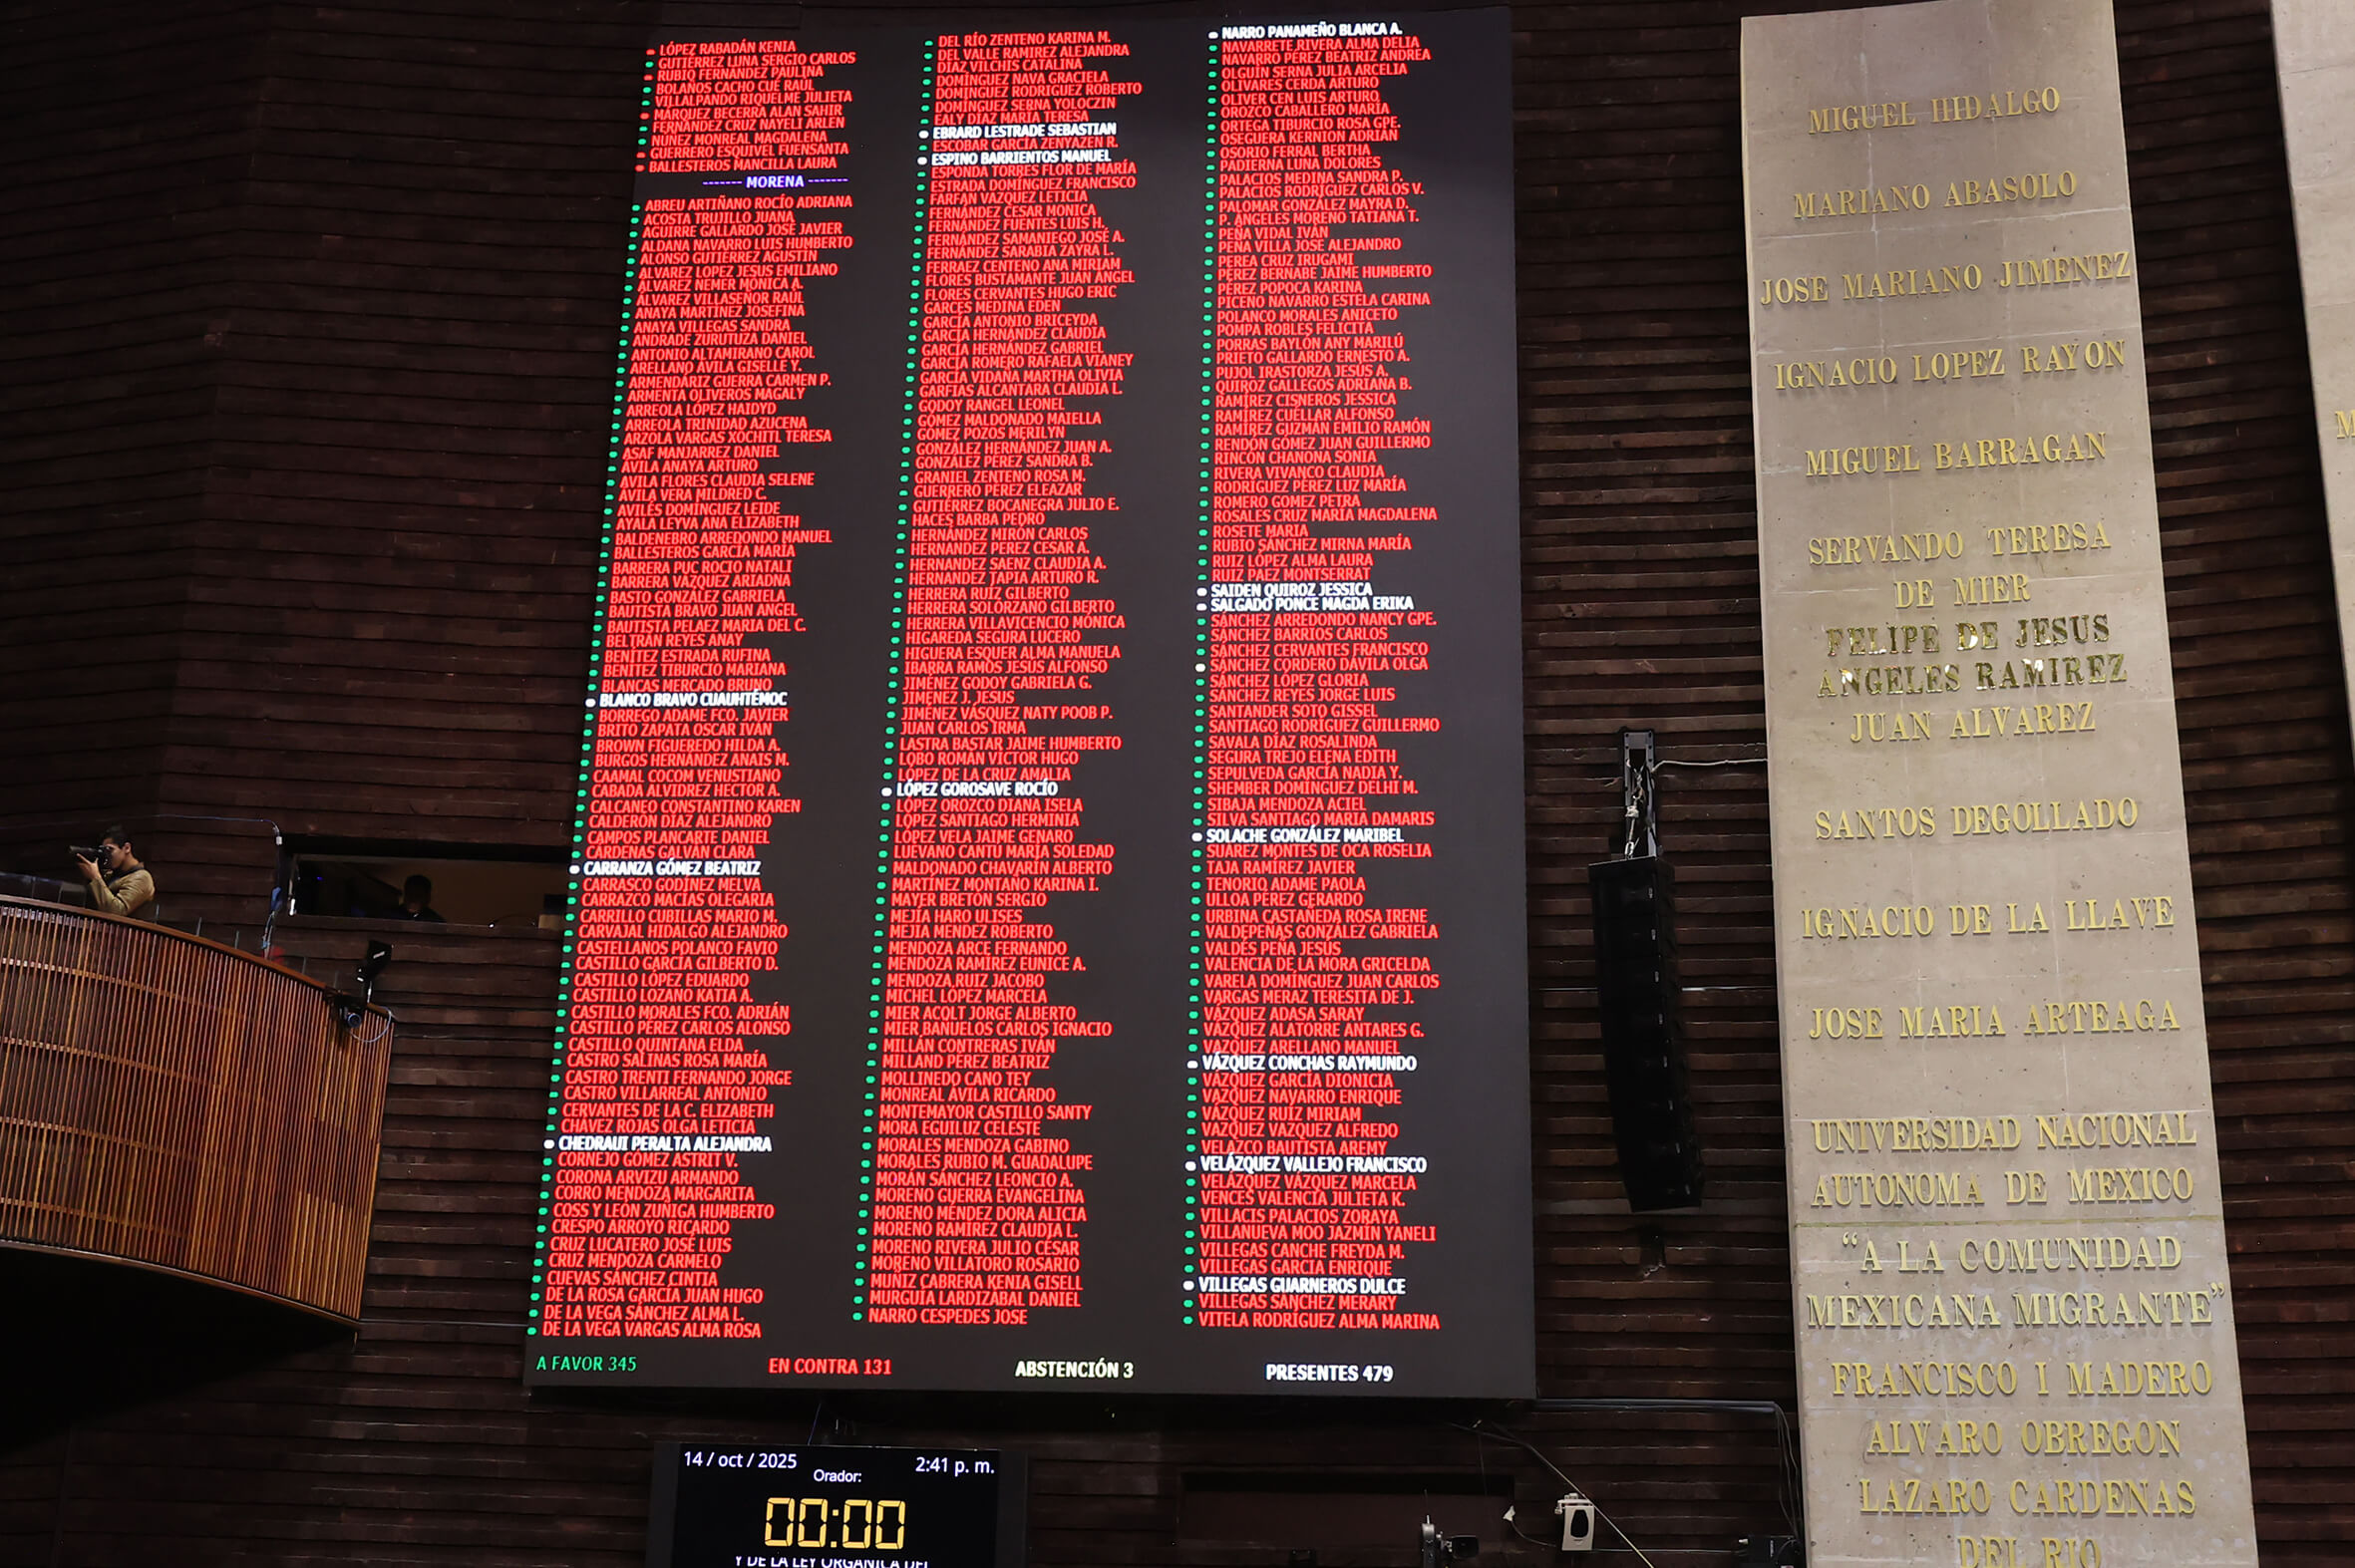 LÓPEZ RABADÁN KENIA
GUTIÉRREZ LUNA SERGIO CARLOS
RUBIO FERNÁNDEZ PAULINA
BOLAÑOS CACHO CUÉ RAÚL
VILLALPANDO RIQUELME JULIETA
MÁRQUEZ BECERRA ALAN SAHIR
FERNÁNDEZ CRUZ NAYELI ARLEN
NÚÑEZ MONREAL MAGDALENA
GUERRERO ESQUIVEL FUENSANTA
BALLESTEROS MANCILLA LAURA
------- MORENA -------
ABREU ARTIÑANO ROCÍO ADRIANA
ACOSTA TRUJILLO JUANA
AGUIRRE GALLARDO JOSÉ JAVIER
ALDANA NAVARRO LUIS HUMBERTO
ALONSO GUTIÉRREZ AGUSTÍN
ÁLVAREZ LÓPEZ JESÚS EMILIANO
ÁLVAREZ NEMER MÓNICA A.
ÁLVAREZ VILLASEÑOR RAÚL
ANAYA MARTÍNEZ JOSEFINA
ANAYA VILLEGAS SANDRA
ANDRADE ZURUTUZA DANIEL
ANTONIO ALTAMIRANO CAROL
ARELLANO ÁVILA GISELLE Y.
ARMENDÁRIZ GUERRA CARMEN P.
ARMENTA OLIVEROS MAGALY
ARREOLA LÓPEZ HAIDYD
ARREOLA TRINIDAD AZUCENA
ARZOLA VARGAS XÓCHITL TERESA
ASAF MANJARREZ DANIEL
ÁVILA ANAYA ARTURO
ÁVILA FLORES CLAUDIA SELENE
ÁVILA VERA MILDRED C.
AVILÉS DOMÍNGUEZ LEIDE
AYALA LEYVA ANA ELIZABETH
BALDENEBRO ARREDONDO MANUEL
BALLESTEROS GARCÍA MARÍA
BARRERA PUC ROCIO NATALI
BARRERA VÁZQUEZ ARIADNA
BASTO GONZÁLEZ GABRIELA
BAUTISTA BRAVO JUAN ÁNGEL
BAUTISTA PELAEZ MARIA DEL C.
BELTRÁN REYES ANAY
BENÍTEZ ESTRADA RUFINA
BENÍTEZ TIBURCIO MARIANA
BLANCAS MERCADO BRUNO
BLANCO BRAVO CUAUHTÉMOC
BORREGO ADAME FCO. JAVIER
BRITO ZAPATA OSCAR IVÁN
BROWN FIGUEREDO HILDA A.
BURGOS HERNÁNDEZ ANAIS M.
CAAMAL COCOM VENUSTIANO
CABADA ALVIDREZ HÉCTOR A.
CALCÁNEO CONSTANTINO KAREN
CALDERÓN DÍAZ ALEJANDRO
CAMPOS PLANCARTE DANIEL
CÁRDENAS GALVÁN CLARA
CARRANZA GÓMEZ BEATRIZ
CARRASCO GODÍNEZ MELVA
CARRAZCO MACÍAS OLEGARIA
CARRILLO CUBILLAS MARIO M.
CARVAJAL HIDALGO ALEJANDRO
CASTELLANOS POLANCO FAVIO
CASTILLO GARCÍA GILBERTO D.
CASTILLO LÓPEZ EDUARDO
CASTILLO LOZANO KATIA A.
CASTILLO MORALES FCO. ADRIÁN
CASTILLO PÉREZ CARLOS ALONSO
CASTILLO QUINTANA ELDA
CASTRO SALINAS ROSA MARÍA
CASTRO TRENTI FERNANDO JORGE
CASTRO VILLARREAL ANTONIO
CERVANTES DE LA C. ELIZABETH
CHÁVEZ ROJAS OLGA LETICIA
CHEDRAUI PERALTA ALEJANDRA
CORNEJO GÓMEZ ASTRIT V.
CORONA ARVIZU ARMANDO
CORRO MENDOZA MARGARITA
COSS Y LEÓN ZÚÑIGA HUMBERTO
CRESPO ARROYO RICARDO
CRUZ LUCATERO JOSÉ LUIS
CRUZ MENDOZA CARMELO
CUEVAS SÁNCHEZ CINTIA
DE LA ROSA GARCÍA JUAN HUGO
DE LA VEGA SÁNCHEZ ALMA L.
DE LA VEGA VARGAS ALMA ROSA
DEL RÍO ZENTENO KARINA M.
DEL VALLE RAMÍREZ ALEJANDRA
DÍAZ VILCHIS CATALINA
DOMÍNGUEZ NAVA GRACIELA
DOMÍNGUEZ RODRÍGUEZ ROBERTO
DOMÍNGUEZ SERNA YOLOCZIN
EALY DÍAZ MARÍA TERESA
EBRARD LESTRADE SEBASTIAN
ESCOBAR GARCÍA ZENYAZEN R.
ESPINO BARRIENTOS MANUEL
ESPONDA TORRES FLOR DE MARÍA
ESTRADA DOMÍNGUEZ FRANCISCO
FARFÁN VÁZQUEZ LETICIA
FERNÁNDEZ CÉSAR MÓNICA
FERNÁNDEZ FUENTES LUIS H.
FERNÁNDEZ SAMANIEGO JOSÉ A.
FERNÁNDEZ SARABIA ZAYRA L.
FERRAEZ CENTENO ANA MIRIAM
FLORES BUSTAMANTE JUAN ÁNGEL
FLORES CERVANTES HUGO ERIC
GARCÉS MEDINA EDÉN
GARCÍA ANTONIO BRICEYDA
GARCÍA HERNÁNDEZ CLAUDIA
GARCÍA HERNÁNDEZ GABRIEL
GARCÍA ROMERO RAFAELA VIANEY
GARCÍA VIDAÑA MARTHA OLIVIA
GARFIAS ALCÁNTARA CLAUDIA L.
GODOY RANGEL LEONEL
GÓMEZ MALDONADO MAIELLA
GÓMEZ POZOS MERILYN
GONZÁLEZ HERNÁNDEZ JUAN A.
GONZÁLEZ PÉREZ SANDRA B.
GRANIEL ZENTENO ROSA M.
GUERRERO PÉREZ ELEAZAR
GUTIÉRREZ BOCANEGRA JULIO E.
HACES BARBA PEDRO
HERNÁNDEZ MIRÓN CARLOS
HERNÁNDEZ PÉREZ CÉSAR A.
HERNÁNDEZ SÁENZ CLAUDIA A.
HERNÁNDEZ TAPIA ARTURO R.
HERRERA RUÍZ GILBERTO
HERRERA SOLÓRZANO GILBERTO
HERRERA VILLAVICENCIO MÓNICA
HIGAREDA SEGURA LUCERO
HIGUERA ESQUER ALMA MANUELA
IBARRA RAMOS JESUS ALFONSO
JIMÉNEZ GODOY GABRIELA G.
JIMÉNEZ J. JESÚS
JIMÉNEZ VÁSQUEZ NATY POOB P.
JUAN CARLOS IRMA
LASTRA BASTAR JAIME HUMBERTO
LOBO ROMÁN VÍCTOR HUGO
LÓPEZ DE LA CRUZ AMALIA
LÓPEZ GOROSAVE ROCÍO
LÓPEZ OROZCO DIANA ISELA
LÓPEZ SANTIAGO HERMINIA
LÓPEZ VELA JAIME GENARO
LUÉVANO CANTÚ MARÍA SOLEDAD
MALDONADO CHAVARÍN ALBERTO
MARTÍNEZ MONTAÑO KARINA I.
MAYER BRETÓN SERGIO
MEJÍA HARO ULISES
MEJÍA MÉNDEZ ROBERTO
MENDOZA ARCE FERNANDO
MENDOZA RAMÍREZ EUNICE A.
MENDOZA RUIZ JACOBO
MICHEL LÓPEZ MARCELA
MIER ACOLT JORGE ALBERTO
MIER BAÑUELOS CARLOS IGNACIO
MILLÁN CONTRERAS IVÁN
MILLAND PÉREZ BEATRIZ
MOLLINEDO CANO TEY
MONREAL ÁVILA RICARDO
MONTEMAYOR CASTILLO SANTY
MORA EGUILUZ CELESTE
MORALES MENDOZA GABINO
MORALES RUBIO M. GUADALUPE
MORÁN SÁNCHEZ LEONCIO A.
MORENO GUERRA EVANGELINA
MORENO MÉNDEZ DORA ALICIA
MORENO RAMÍREZ CLAUDIA L.
MORENO RIVERA JULIO CÉSAR
MORENO VILLATORO ROSARIO
MUÑIZ CABRERA KENIA GISELL
MURGUÍA LARDIZÁBAL DANIEL
NARRO CÉSPEDES JOSÉ
NARRO PANAMEÑO BLANCA A.
NAVARRETE RIVERA ALMA DELIA
NAVARRO PÉREZ BEATRIZ ANDREA
OLGUÍN SERNA JULIA ARCELIA
OLIVARES CERDA ARTURO
OLIVER CEN LUIS ARTURO
OROZCO CABALLERO MARÍA
ORTEGA TIBURCIO ROSA GPE.
OSEGUERA KERNION ADRIÁN
OSORIO FERRAL BERTHA
PADIERNA LUNA DOLORES
PALACIOS MEDINA SANDRA P.
PALACIOS RODRÍGUEZ CARLOS V.
PALOMAR GONZÁLEZ MAYRA D.
P. ÁNGELES MORENO TATIANA T.
PEÑA VIDAL IVÁN
PEÑA VILLA JOSÉ ALEJANDRO
PEREA CRUZ IRUGAMI
PÉREZ BERNABE JAIME HUMBERTO
PÉREZ POPOCA KARINA
PICENO NAVARRO ESTELA CARINA
POLANCO MORALES ANICETO
POMPA ROBLES FELICITA
PORRAS BAYLÓN ANY MARILÚ
PRIETO GALLARDO ERNESTO A.
PUJOL IRASTORZA JESÚS A.
QUIROZ GALLEGOS ADRIANA B.
RAMÍREZ CISNEROS JESSICA
RAMÍREZ CUÉLLAR ALFONSO
RAMÍREZ GUZMÁN EMILIO RAMÓN
RENDÓN GÓMEZ JUAN GUILLERMO
RINCÓN CHANONA SONIA
RIVERA VIVANCO CLAUDIA
RODRÍGUEZ PÉREZ LUZ MARÍA
ROMERO GÓMEZ PETRA
ROSALES CRUZ MARIA MAGDALENA
ROSETE MARIA
RUBIO SÁNCHEZ MIRNA MARÍA
RUIZ LÓPEZ ALMA LAURA
RUIZ PÁEZ MONTSERRAT
SAIDEN QUIROZ JESSICA
SALGADO PONCE MAGDA ERIKA
SÁNCHEZ ARREDONDO NANCY GPE.
SÁNCHEZ BARRIOS CARLOS
SÁNCHEZ CERVANTES FRANCISCO
SÁNCHEZ CORDERO DÁVILA OLGA
SÁNCHEZ LÓPEZ GLORIA
SÁNCHEZ REYES JORGE LUIS
SANTANDER SOTO GISSEL
SANTIAGO RODRÍGUEZ GUILLERMO
SAVALA DÍAZ ROSALINDA
SEGURA TREJO ELENA EDITH
SEPÚLVEDA GARCÍA NADIA Y.
SHEMBER DOMÍNGUEZ DELHI M.
SIBAJA MENDOZA ACIEL
SILVA SANTIAGO MARIA DAMARIS
SOLACHE GONZÁLEZ MARIBEL
SUÁREZ MONTES DE OCA ROSELIA
TAJA RAMÍREZ JAVIER
TENORIO ADAME PAOLA
ULLOA PÉREZ GERARDO
URBINA CASTAÑEDA ROSA IRENE
VALDEPEÑAS GONZÁLEZ GABRIELA
VALDÉS PEÑA JESÚS
VALENCIA DE LA MORA GRICELDA
VARELA DOMÍNGUEZ JUAN CARLOS
VARGAS MERAZ TERESITA DE J.
VÁZQUEZ ADASA SARAY
VÁZQUEZ ALATORRE ANTARES G.
VÁZQUEZ ARELLANO MANUEL
VÁZQUEZ CONCHAS RAYMUNDO
VÁZQUEZ GARCÍA DIONICIA
VÁZQUEZ NAVARRO ENRIQUE
VÁZQUEZ RUÍZ MIRIAM
VÁZQUEZ VÁZQUEZ ALFREDO
VELAZCO BAUTISTA AREMY
VELÁZQUEZ VALLEJO FRANCISCO
VELÁZQUEZ VÁZQUEZ MARCELA
VENCES VALENCIA JULIETA K.
VILLACIS PALACIOS ZORAYA
VILLANUEVA MOO JAZMÍN YANELI
VILLEGAS CANCHE FREYDA M.
VILLEGAS GARCÍA ENRIQUE
VILLEGAS GUARNEROS DULCE
VILLEGAS SÁNCHEZ MERARY
VITELA RODRÍGUEZ ALMA MARINA
A FAVOR 345
EN CONTRA 131
ABSTENCIÓN 3
PRESENTES 479
14 / oct / 2025
2:41 p. m.
Orador:
00:00
Y DE LA LEY ORGÁNICA DEL
MIGUEL HIDALGO
MARIANO ABASOLO
JOSE MARIANO JIMENEZ
IGNACIO LOPEZ RAYON
MIGUEL BARRAGAN
SERVANDO TERESA
DE MIER
FELIPE DE JESUS
ANGELES RAMIREZ
JUAN ALVAREZ
SANTOS DEGOLLADO
IGNACIO DE LA LLAVE
JOSE MARIA ARTEAGA
UNIVERSIDAD NACIONAL
AUTONOMA DE MEXICO
“A LA COMUNIDAD
MEXICANA MIGRANTE”
FRANCISCO I MADERO
ALVARO OBREGON
LAZARO CARDENAS
DEL RIO